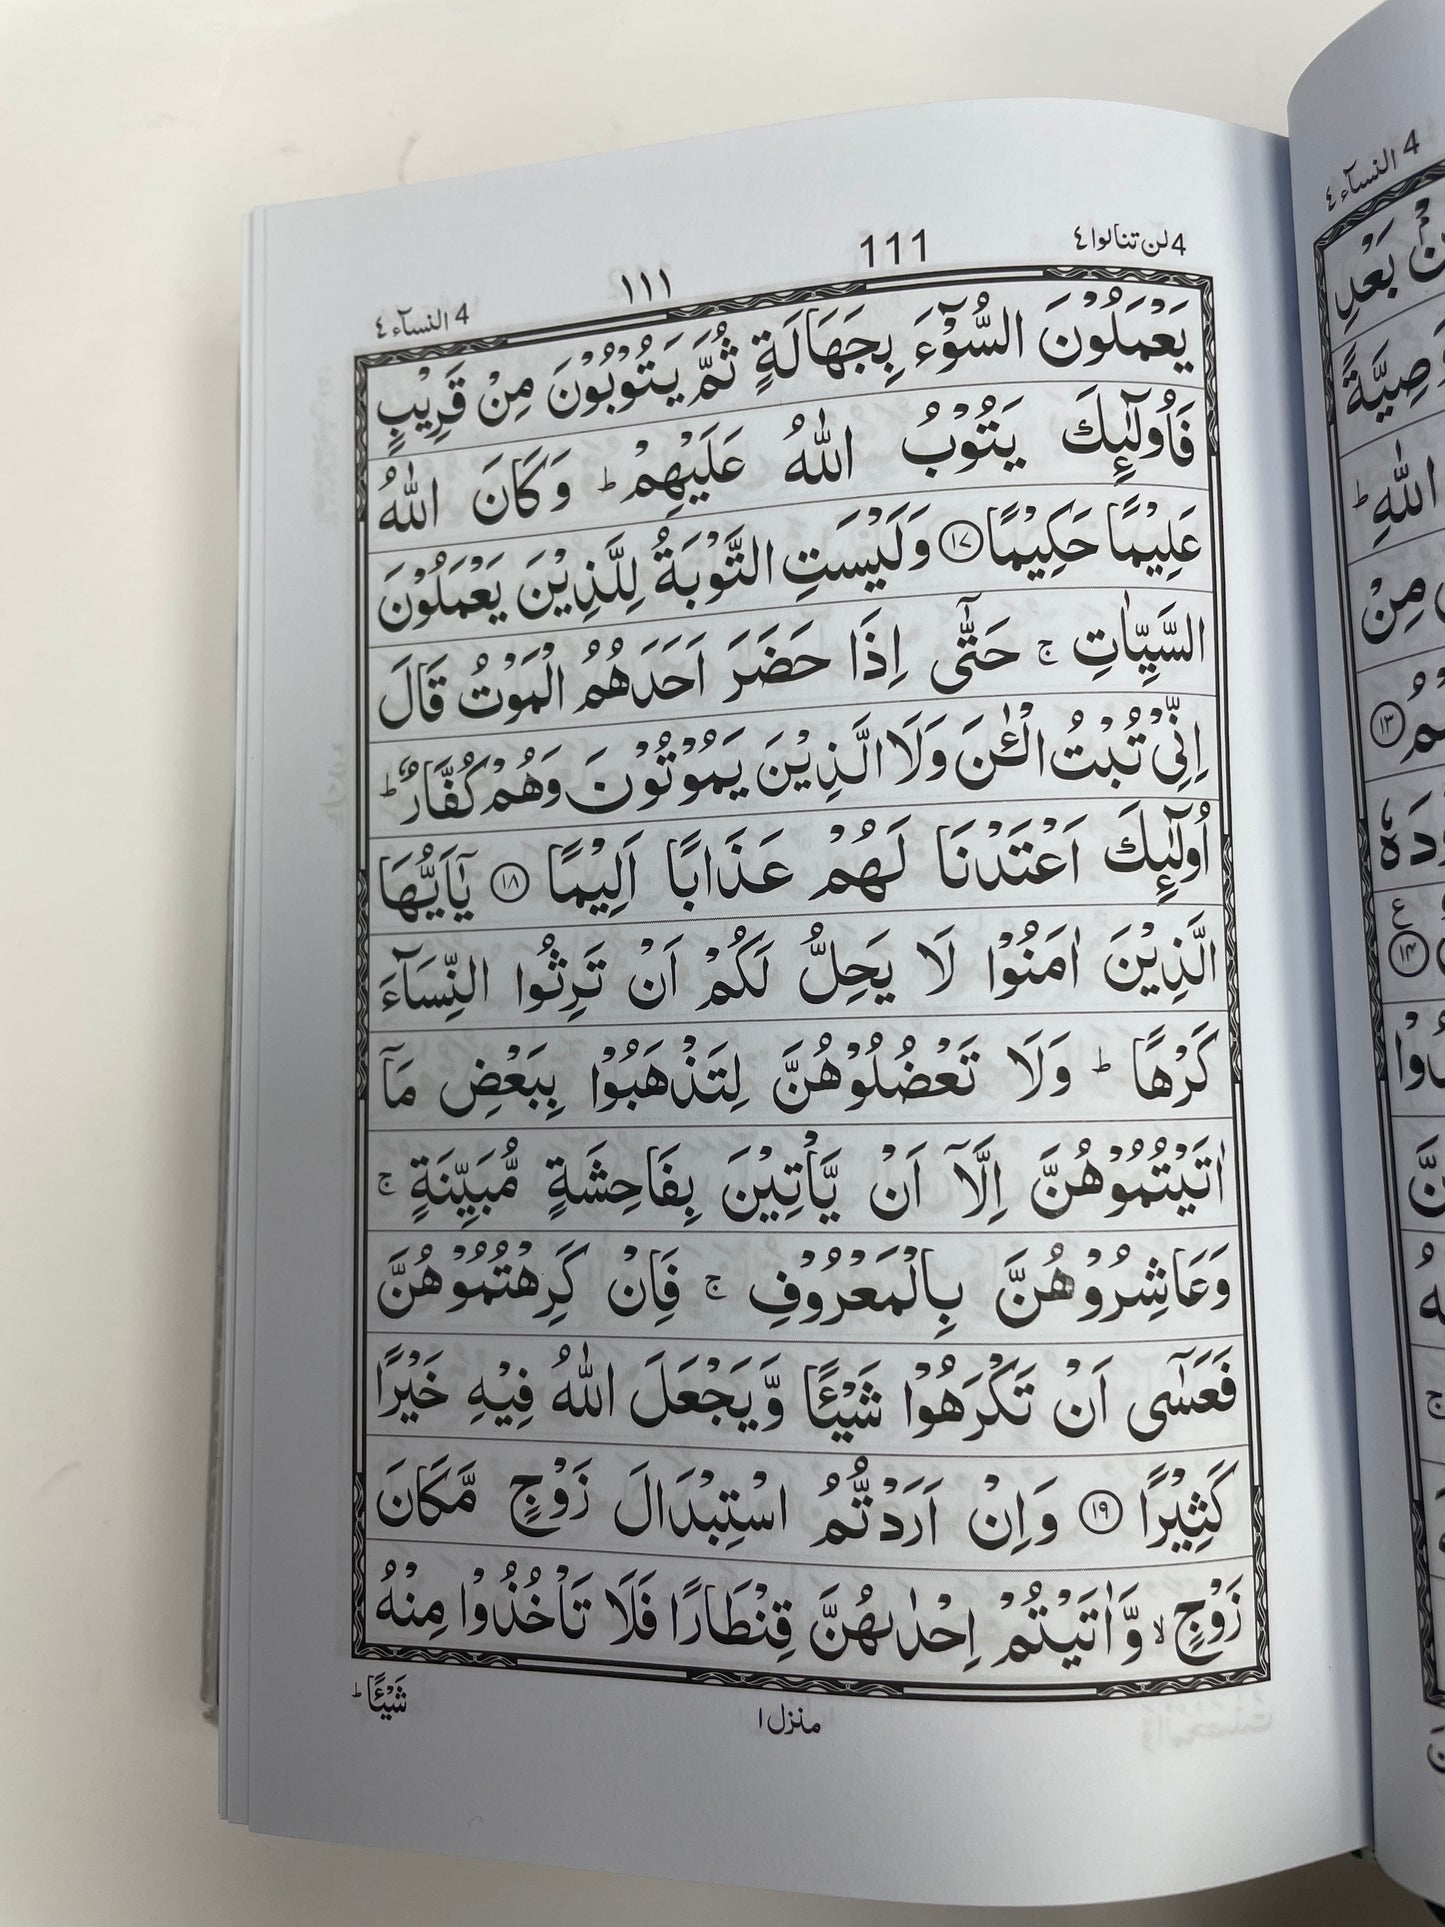 4 لن تنالوا ٤
111
١١١
4 النسآء ٤
يَعْمَلُوْنَ السُّوْٓءَ بِجَهَالَةٍ ثُمَّ يَتُوْبُوْنَ مِنْ قَرِيْبٍ
فَاُولٰٓئِكَ يَتُوْبُ اللّٰهُ عَلَيْهِمْ ؕ وَكَانَ اللّٰهُ
عَلِيْمًا حَكِيْمًا ۝١٧ وَلَيْسَتِ التَّوْبَةُ لِلَّذِيْنَ يَعْمَلُوْنَ
السَّيِّاٰتِ ۚ حَتّٰٓى اِذَا حَضَرَ اَحَدَهُمُ الْمَوْتُ قَالَ
اِنِّىْ تُبْتُ الْـٰٔنَ وَلَا الَّذِيْنَ يَمُوْتُوْنَ وَهُمْ كُفَّارٌ ؕ
اُولٰٓئِكَ اَعْتَدْنَا لَهُمْ عَذَابًا اَلِيْمًا ۝١٨ يٰٓاَيُّهَا
الَّذِيْنَ اٰمَنُوْا لَا يَحِلُّ لَكُمْ اَنْ تَرِثُوا النِّسَآءَ
كَرْهًا ؕ وَلَا تَعْضُلُوْهُنَّ لِتَذْهَبُوْا بِبَعْضِ مَآ
اٰتَيْتُمُوْهُنَّ اِلَّآ اَنْ يَّاْتِيْنَ بِفَاحِشَةٍ مُّبَيِّنَةٍ ۚ
وَعَاشِرُوْهُنَّ بِالْمَعْرُوْفِ ۚ فَاِنْ كَرِهْتُمُوْهُنَّ
فَعَسٰٓى اَنْ تَكْرَهُوْا شَيْئًا وَّيَجْعَلَ اللّٰهُ فِيْهِ خَيْرًا
كَثِيْرًا ۝١٩ وَاِنْ اَرَدْتُّمُ اسْتِبْدَالَ زَوْجٍ مَّكَانَ
زَوْجٍ ۙ وَّاٰتَيْتُمْ اِحْدٰىهُنَّ قِنْطَارًا فَلَا تَاْخُذُوْا مِنْهُ
شَيْئًا ؕ
منزل ١
4 النسآء ٤
بَعْدِ
اللّٰهِ ؕ
مِنْ
١٣
ع
١٤